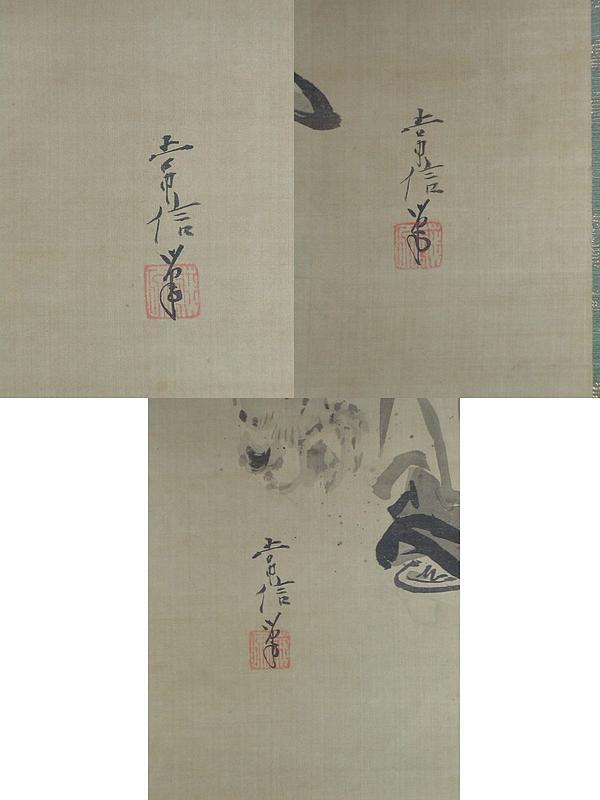 常信筆
常信筆
常信筆